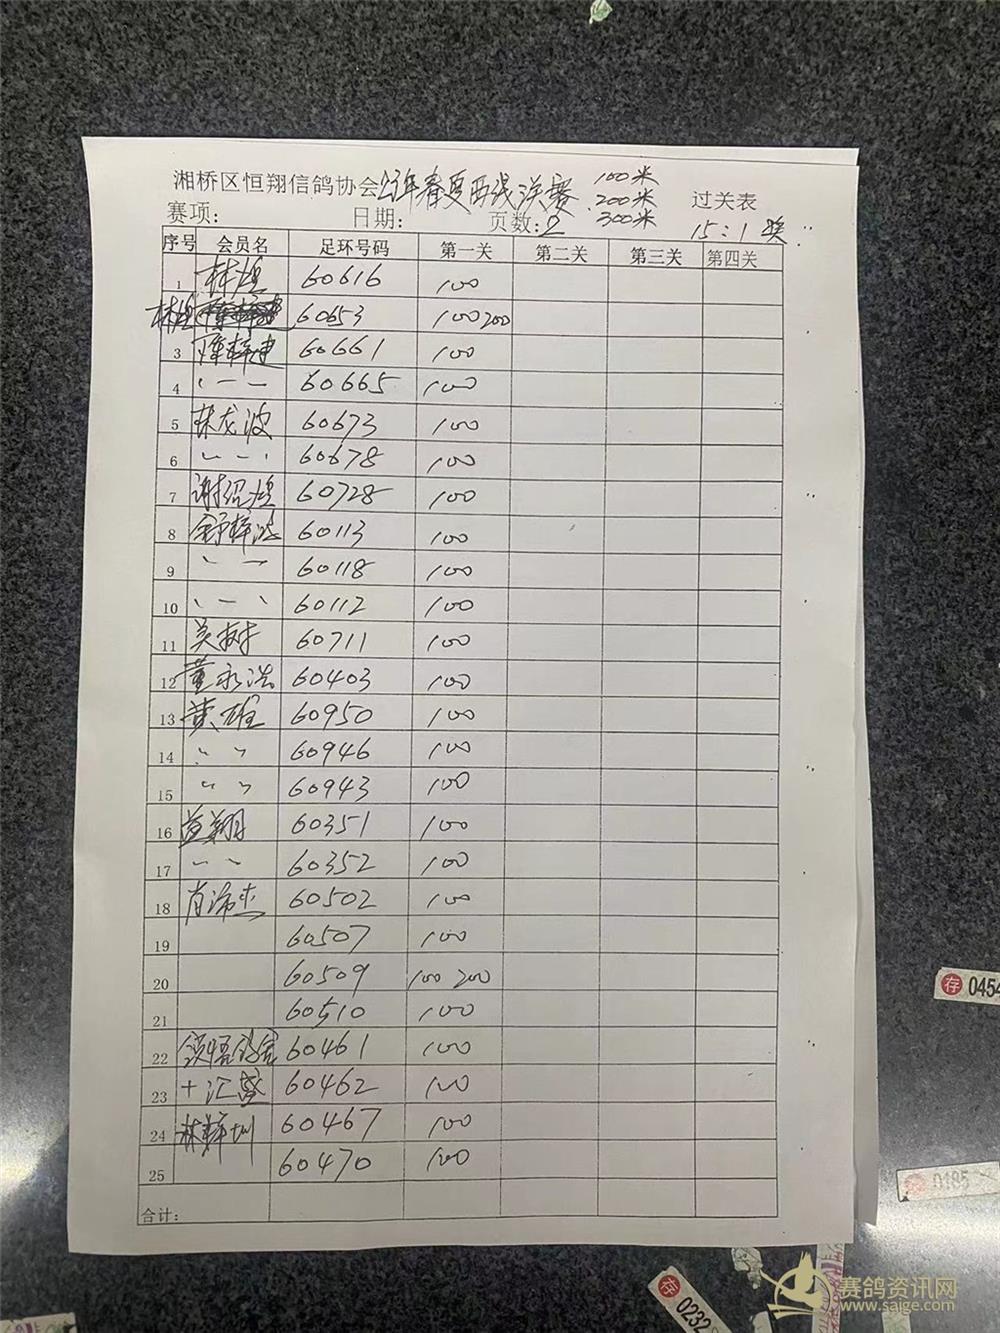 湘桥区恒翔信鸽协会 年春夏西线决赛 100米 过关表
200米
赛项: 日期: 页数:2 300米 15:1 奖
序号 会员名 足环号码 第一关 第二关 第三关 第四关
1 林煌 60616 100
林煌 60653 100 200
3 陈梓建 60661 100
4 〃 60665 100
5 林龙波 60673 100
6 〃 60678 100
7 谢绍煌 60728 100
8 60113 100
9 〃 60118 100
10 〃 60112 100
11 吴树 60711 100
12 董永浩 60403 100
13 黄雄 60950 100
14 〃 60946 100
15 〃 60943 100
16 翔 60351 100
17 〃 60352 100
18 肖沛杰 60502 100
19 60507 100
20 60509 100 200
21 60510 100
22 60461 100
23 +汇盛 60462 100
24 林梓圳 60467 100
25 60470 100
合计:
存 0454
0185
存 0232
赛鸽资讯网
www.saige.com